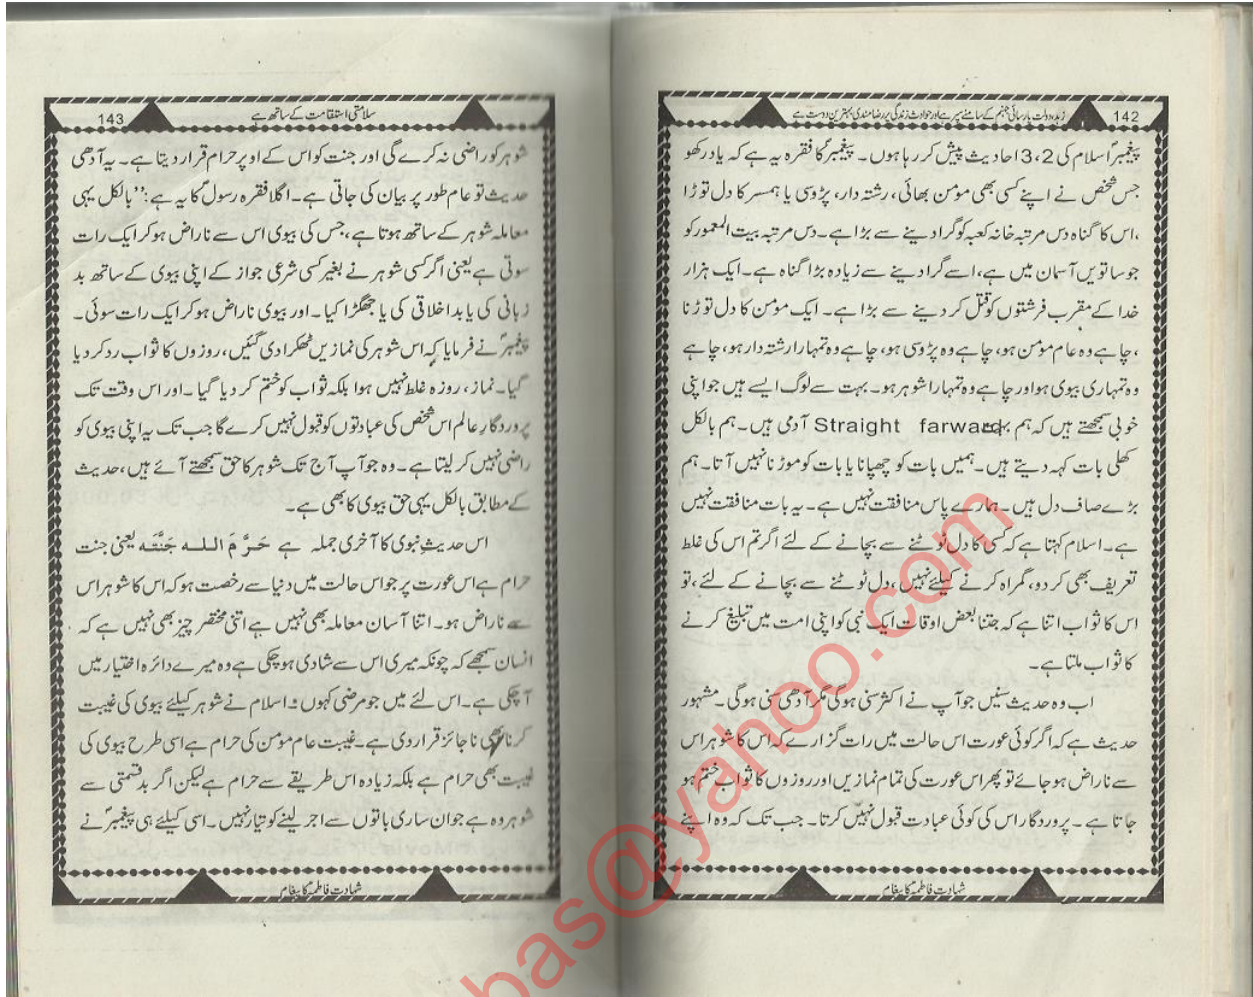 142
زہد و دولت پارسائی جہنم کے سامنے سپر ہے اور حوادث زندگی پر رضا مندی بہترین دوست ہے
پیغمبرؐ اسلام کی 2، 3 احادیث پیش کر رہا ہوں۔ پیغمبرؐ کا فقرہ یہ ہے کہ یاد رکھو
جس شخص نے اپنے کسی بھی مؤمن بھائی، رشتہ دار، پڑوسی یا ہمسر کا دل توڑا
،اس کا گناہ دس مرتبہ خانہ کعبہ کو گرا دینے سے بڑا ہے۔ دس مرتبہ بیت المعمور کو
جو ساتویں آسمان میں ہے، اسے گرا دینے سے زیادہ بڑا گناہ ہے۔ ایک ہزار
خدا کے مقرب فرشتوں کو قتل کر دینے سے بڑا ہے۔ ایک مومن کا دل توڑنا
،چاہے وہ عام مومن ہو، چاہے وہ پڑوسی ہو، چاہے وہ تمہارا رشتہ دار ہو، چاہے
وہ تمہاری بیوی ہو اور چاہے وہ تمہارا شوہر ہو۔ بہت سے لوگ ایسے ہیں جو اپنی
خوبی سمجھتے ہیں کہ ہم بہت Straight farward آدمی ہیں۔ ہم بالکل
کھلی بات کہہ دیتے ہیں۔ ہمیں بات کو چھپانا یا بات کو موڑنا نہیں آتا۔ ہم
بڑے صاف دل ہیں۔ ہمارے پاس منافقت نہیں ہے۔ یہ بات منافقت نہیں
ہے۔ اسلام کہتا ہے کہ کسی کا دل ٹوٹنے سے بچانے کے لئے اگر تم اس کی غلط
تعریف بھی کر دو، گمراہ کرنے کیلئے نہیں، دل ٹوٹنے سے بچانے کے لئے، تو
اس کا ثواب اتنا ہے کہ جتنا بعض اوقات ایک نبی کو اپنی امت میں تبلیغ کرنے
کا ثواب ملتا ہے۔
اب وہ حدیث سنیں جو آپ نے اکثر سنی ہوگی مگر آدھی سنی ہوگی۔ مشہور
حدیث ہے کہ اگر کوئی عورت اس حالت میں رات گزارے کہ اس کا شوہر اس
سے ناراض ہو جائے تو پھر اس عورت کی تمام نمازیں اور روزوں کا ثواب ختم ہو
جاتا ہے۔ پروردگار اس کی کوئی عبادت قبول نہیں کرتا۔ جب تک کہ وہ اپنے
شہادت فاطمہؑ کا پیغام
143
سلامتی استقامت کے ساتھ ہے
شوہر کو راضی نہ کرے گی اور جنت کو اس کے اوپر حرام قرار دیتا ہے۔ یہ آدھی
حدیث تو عام طور پر بیان کی جاتی ہے۔ اگلا فقرہ رسولؐ کا یہ ہے: ’’بالکل یہی
معاملہ شوہر کے ساتھ ہوتا ہے، جس کی بیوی اس سے ناراض ہو کر ایک رات
سوتی ہے یعنی اگر کسی شوہر نے بغیر کسی شرعی جواز کے اپنی بیوی کے ساتھ بد
زبانی کی یا بد اخلاقی کی یا جھگڑا کیا۔ اور بیوی ناراض ہو کر ایک رات سوئی۔
پیغمبرؐ نے فرمایا کہ اس شوہر کی نمازیں ٹھکرا دی گئیں، روزوں کا ثواب رد کر دیا
گیا۔ نماز، روزہ غلط نہیں ہوا بلکہ ثواب کو ختم کر دیا گیا۔ اور اس وقت تک
پروردگارِ عالم اس شخص کی عبادتوں کو قبول نہیں کرے گا جب تک یہ اپنی بیوی کو
راضی نہیں کر لیتا ہے۔ وہ جو آپ آج تک شوہر کا حق سمجھتے آئے ہیں، حدیث
کے مطابق بالکل یہی حق بیوی کا بھی ہے۔
اس حدیثِ نبوی کا آخری جملہ ہے حَرَّمَ اللہ جَنَّتَہ یعنی جنت
حرام ہے اس عورت پر جو اس حالت میں دنیا سے رخصت ہو کہ اس کا شوہر اس
سے ناراض ہو۔ اتنا آسان معاملہ بھی نہیں ہے اتنی مختصر چیز بھی نہیں ہے کہ
انسان سمجھے کہ چونکہ میری اس سے شادی ہو چکی ہے وہ میرے دائرہ اختیار میں
آ چکی ہے۔ اس لئے میں جو مرضی کہوں۔ اسلام نے شوہر کیلئے بیوی کی غیبت
کرنا بھی ناجائز قرار دی ہے۔ غیبت عام مومن کی حرام ہے اسی طرح بیوی کی
غیبت بھی حرام ہے بلکہ زیادہ اس طریقے سے حرام ہے لیکن اگر بدقسمتی سے
شوہر وہ ہے جو ان ساری باتوں سے اجر لینے کو تیار نہیں۔ اسی کیلئے ہی پیغمبرؐ نے
شہادت فاطمہؑ کا پیغام
bas@yahoo.com